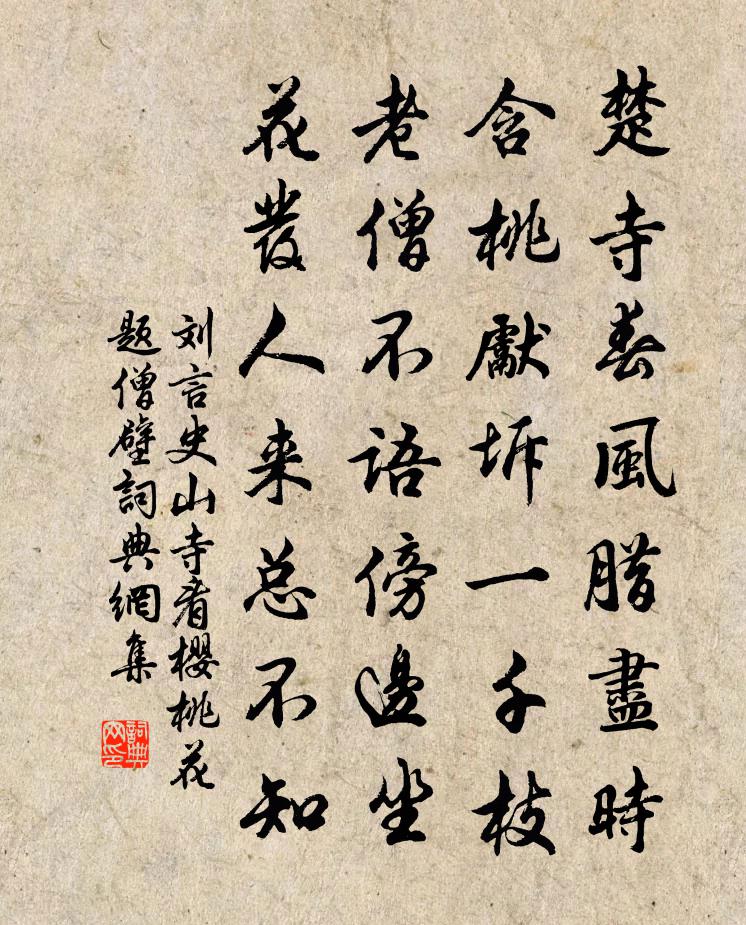 楚寺春風腊盡時
含桃獻坼一千枝
老僧不語傍邊坐
花發人来总不知
刘言史山寺看櫻桃花
题僧壁詞典網集
詞典网印